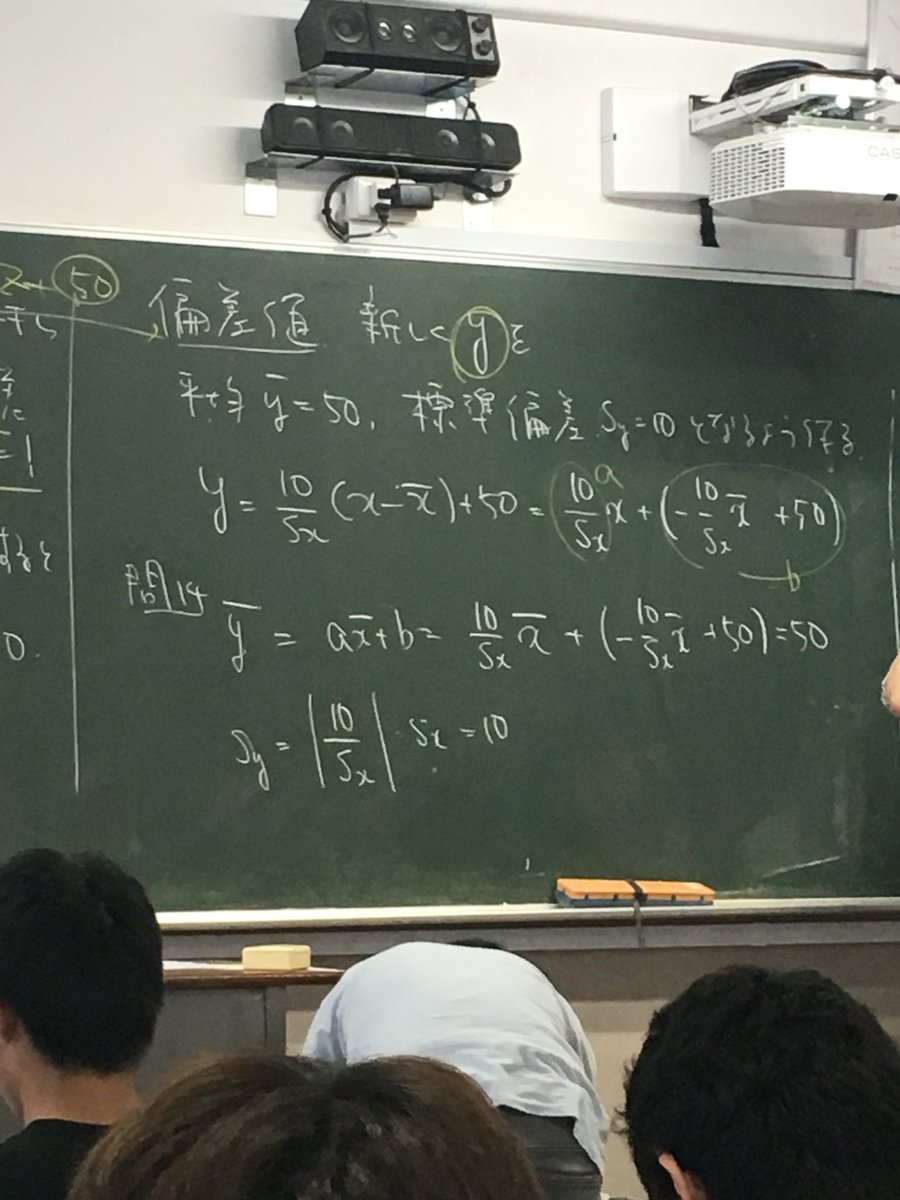 50
偏差値 新しく y を
平均 ȳ = 50, 標準偏差 Sy = 10 となるよう
y = 10/Sx (x - x̄) + 50 = 10/Sx x + (- 10/Sx x̄ + 50)
a
b
問14
ȳ = ax̄ + b = 10/Sx x̄ + (- 10/Sx x̄ + 50) = 50
Sy = |10/Sx| Sx = 10
0.
CAS